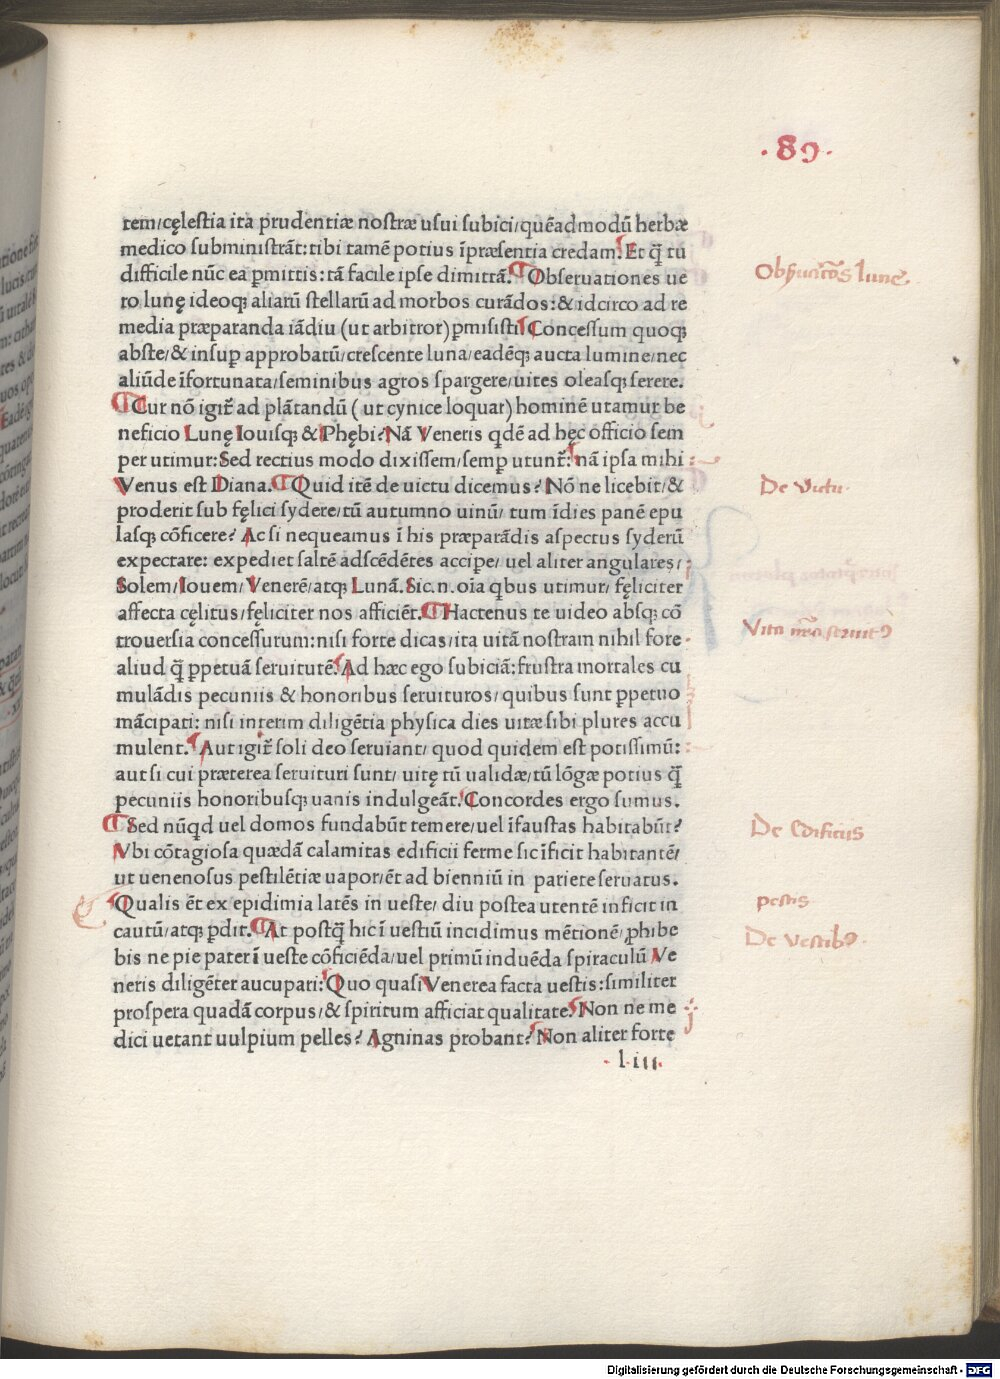 ·89·
tem/cęlestia ita prudentiæ nostræ usui subici/quēadmodū herbæ
medico subministrāt: tibi tamē potius īpræsentia credam. Et q̄ tu
difficile nūc ea ꝑmittis: tā facile ipse dimittā. Obseruationes ue
ro lunę ideoqꝫ aliarū stellarū ad morbos curādos: & idcirco ad re
media præparanda iādiu (ut arbitror) ꝑmisisti. Concessum quoqꝫ
abste/& insuꝑ approbatū/crescente luna/eadēqꝫ aucta lumine/nec
aliūde īfortunata/seminibus agros spargere/uites oleasqꝫ serere.
Cur nō igit̄ ad plātandū ( ut cynice loquar) hominē utamur be
neficio Lunę Iouisqꝫ & Phębi? Nā Veneris qdē ad hęc officio sem
per utimur: Sed rectius modo dixissem/semꝑ utunt̄: nā ipsa mihi
Venus est Diana. Quid itē de uictu dicemus? Nō ne licebit/&
proderit sub fęlici sydere/tū autumno uinū/ tum īdies panē epu
lasqꝫ cōficere? Ac si nequeamus ī his præparādis aspectus syderū
expectare: expediet saltē adscēdētes accipe/ uel aliter angulares/
Solem/Iouem/Venerē/atqꝫ Lunā. Sic.n. oīa qbus utimur/ fęliciter
affecta cęlitus/fęliciter nos afficiēt. Hactenus te uideo absqꝫ cō
trouersia concessurum: nisi forte dicas/ita uitā nostram nihil fore
aliud q̄ ꝑpetuā seruitutē. Ad hæc ego subiciā: frustra mortales cu
mulādis pecuniis & honoribus seruituros/quibus sunt ꝑpetuo
mācipati: nisi interim diligētia physica dies uitæ sibi plures accu
mulent. Aut igit̄ soli deo seruiant/ quod quidem est potissimū:
aut si cui præterea seruituri sunt/ uitę tū ualidæ/tū lōgæ potius q̄
pecuniis honoribusqꝫ uanis indulgeāt. Concordes ergo sumus.
Sed nūqd uel domos fundabūt temere/uel īfaustas habitabūt?
Vbi cōtagiosa quædā calamitas edificii ferme sic īficit habitantē/
ut uenenosus pestilētiæ uapor/ēt ad bienniū in pariete seruatus.
Qualis ēt ex epidimia latēs in ueste/ diu postea utentē inficit in
cautū/atqꝫ ꝑdit. At postq̄ hic ī uestiū incidimus mētionē/ꝓhibe
bis ne pie pater ī ueste cōficiēda/uel primū induēda spiraculū Ve
neris diligēter aucupari: Quo quasi Venerea facta uestis: similiter
prospera quadā corpus/& spiritum afficiat qualitate. Non ne me
dici uetant uulpium pelles? Agninas probant? Non aliter forte
·l·iii·
De Victu·
De Edificiis
pestis
Digitalisierung gefördert durch die Deutsche Forschungsgemeinschaft - DFG